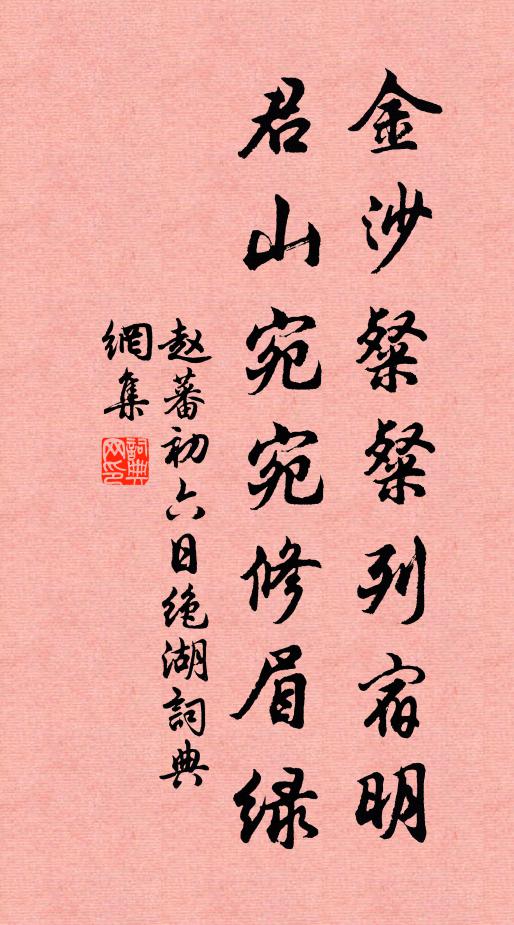 金沙粲粲列宿明
君山宛宛修眉绿
赵蕃初六日绝湖詞典
網集
詞典網印